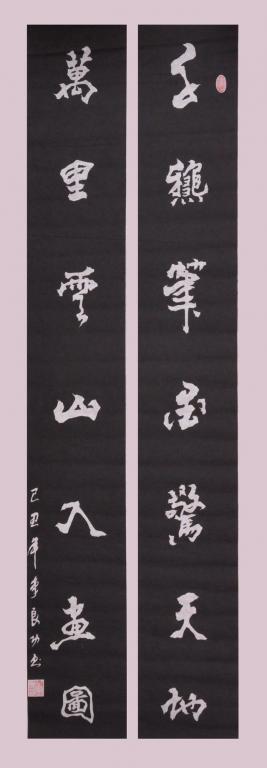 千龝筆墨驚天地
萬里雲山入畫圖
己丑年李良功書